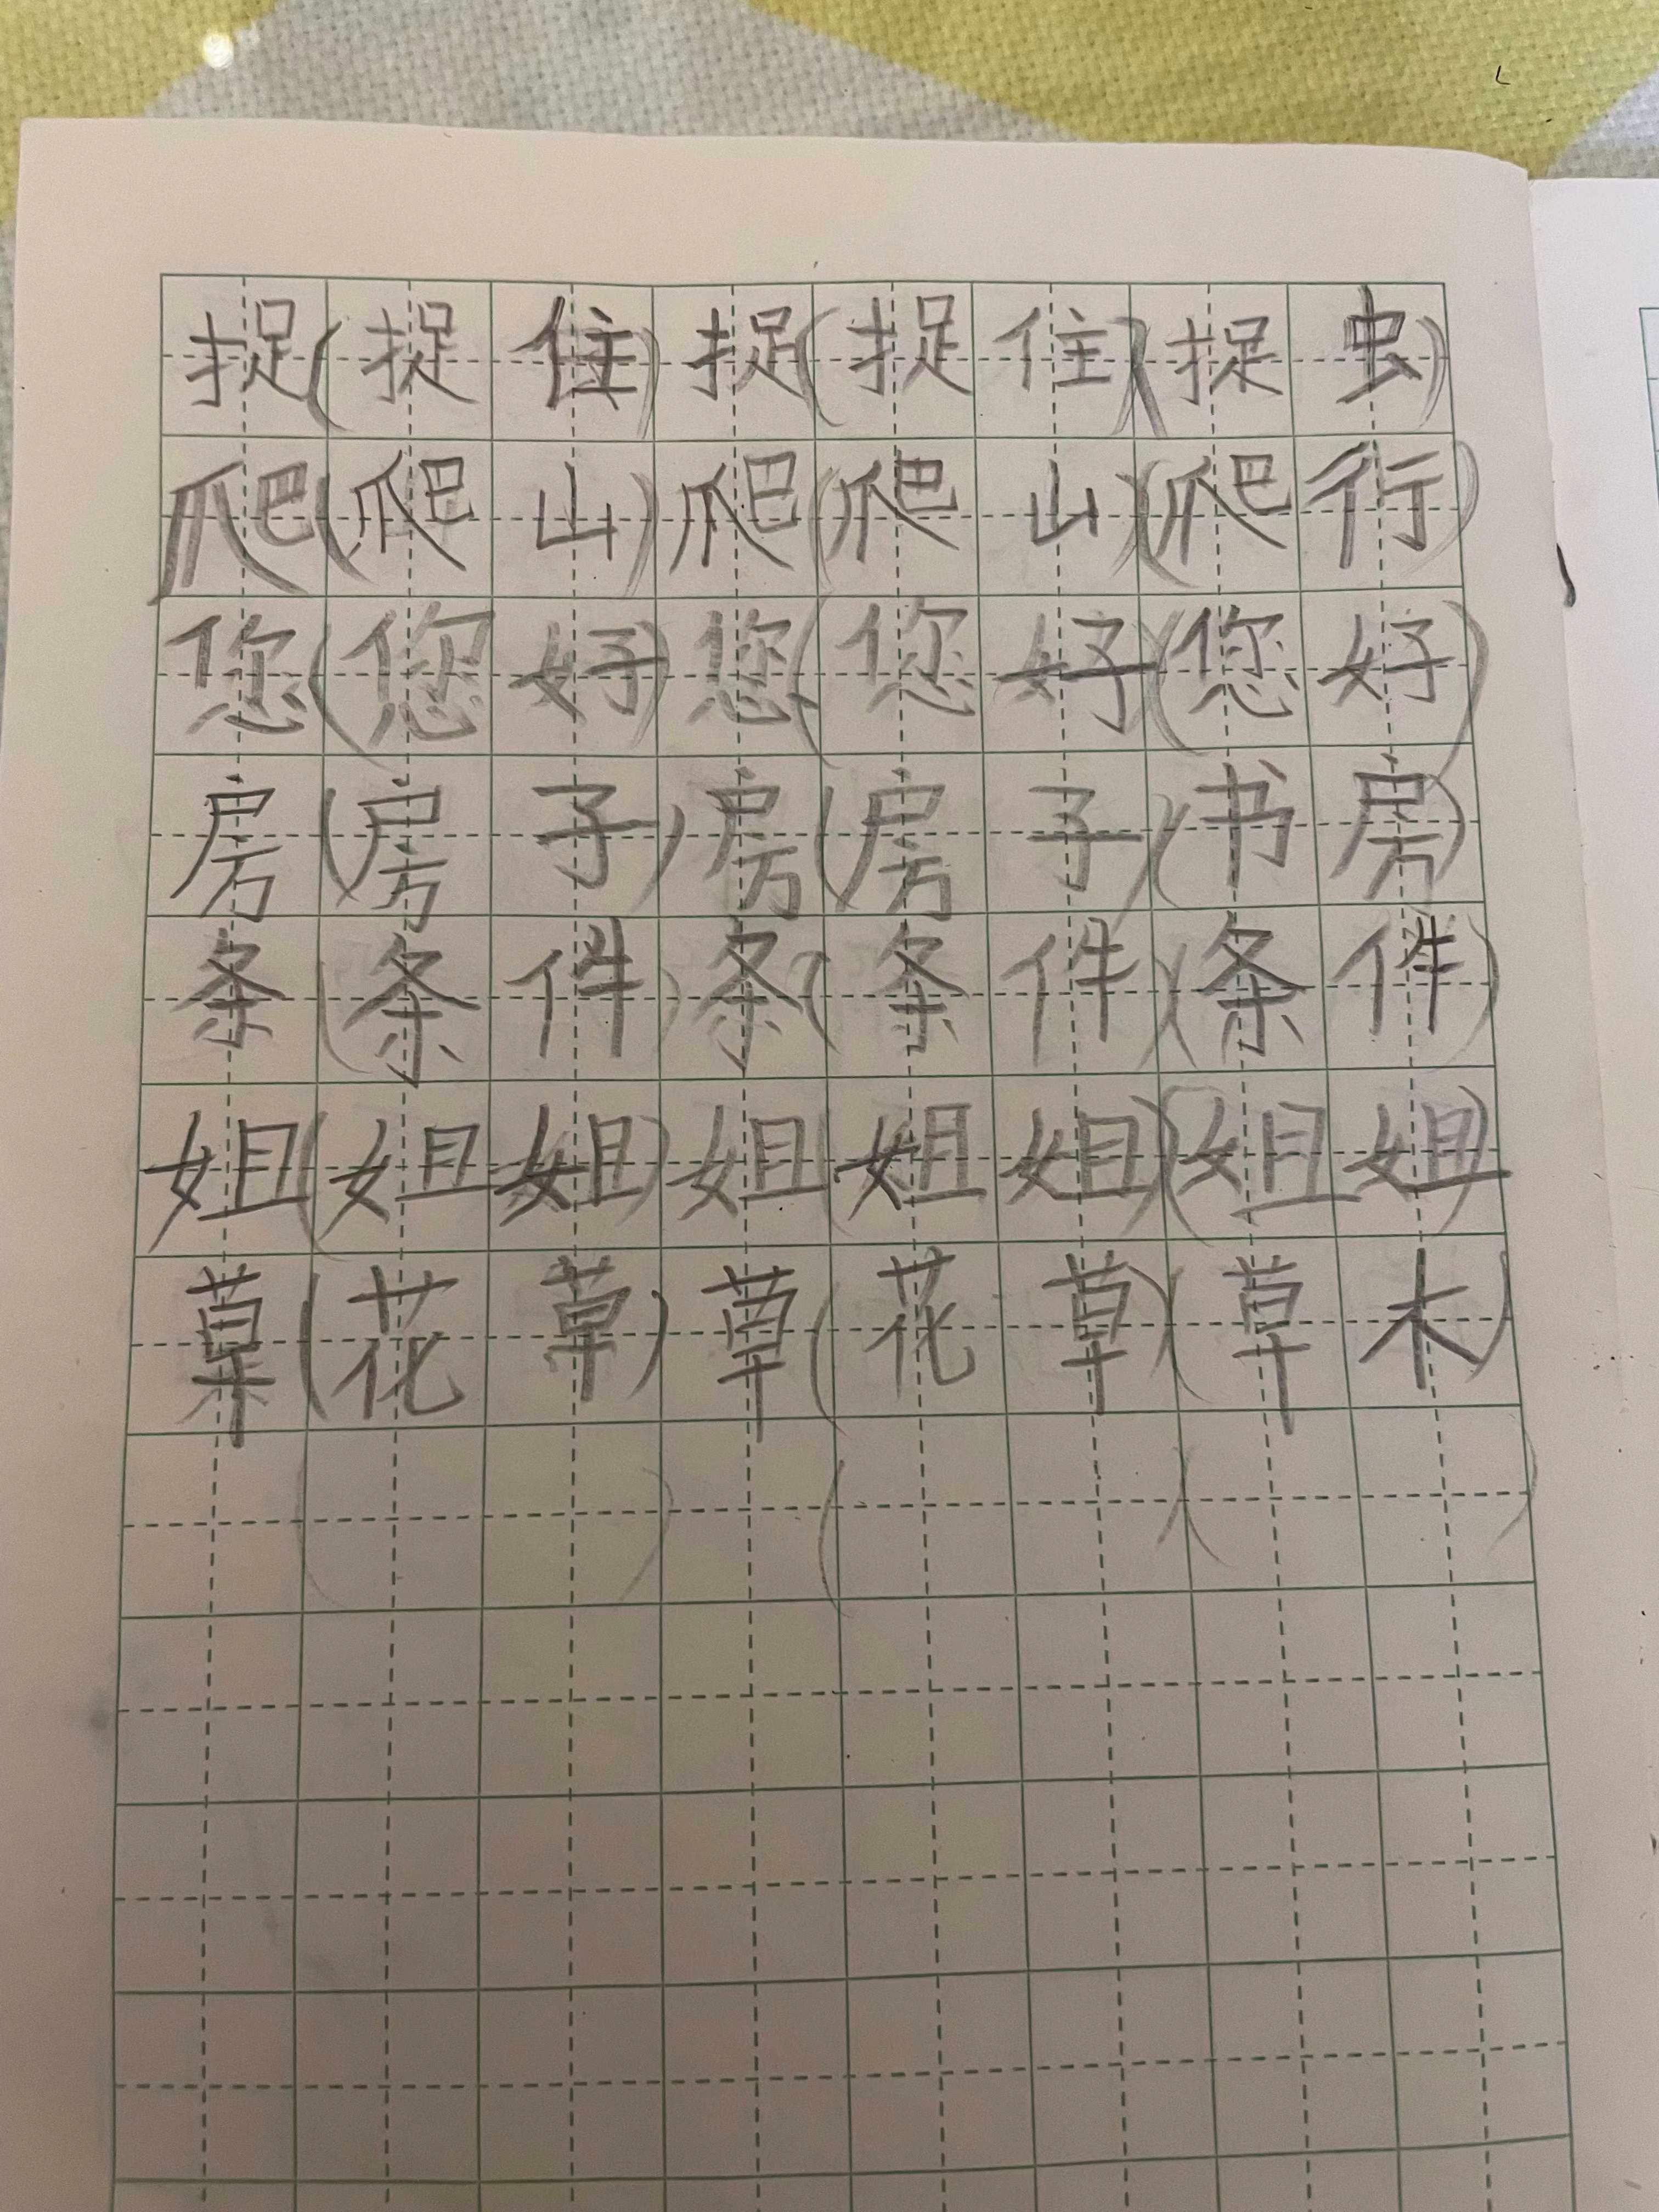 捉(捉住)捉(捉住)(捉虫)
爬(爬山)爬(爬山)(爬行)
您(您好)您(您好)(您好)
房(房子)房(房子)(书房)
条(条件)条(条件)(条件)
姐(姐姐)姐(姐姐)(姐姐)
草(花草)草(花草)(草木)
( )( )( )